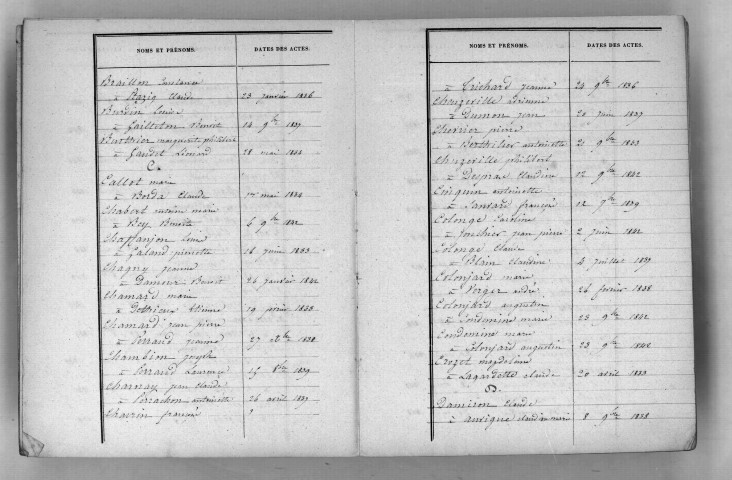 NOMS ET PRÉNOMS. DATES DES ACTES.
Braillon
à Razig Claude 23 janvier 1836
Burdin Louise
à Gailleton Benoit 14 9bre 1839
Burthier marguerite philiberte
à Gaudet Léonard 28 mai 1844
C.
Callot marie
à Borda Claude 1er mai 1834
Chabert antoine marie
à Bey Benoite 6 9bre 1842
Chaffanjon Louis
à Galand pierrette 16 juin 1833
Chagny jeanne
à Damour Benoit 26 janvier 1842
Chamard marie
à Dottrieux Etienne 19 février 1838
Chamard jean pierre
à Perraud jeanne 27 1838
Chambion joseph
à Perraud Laurence 15 8bre 1839
Charnay jean claude
à Perrachon antoinette 26 avril 1837
Charrin françois
NOMS ET PRÉNOMS. DATES DES ACTES.
à Trichard jeanne 24 9bre 1836
Chuzeville Etienne
à Dumon jean 20 juin 1837
Cherrier pierre
à Berthelier antoinette 21 9bre 1833
Chuzeville philibert
à Despras Claudine 12 9bre 1842
Cinquin antoinette
à Sanvard françois 12 7bre 1839
Colonge Caroline
à jean pierre 2 juin 1842
Colonge Claude
à Blain Claudine 4 juillet 1837
Colonjard marie
à Verger andré 26 février 1838
Colonjard augustin
à Condemine marie 23 9bre 1842
Condemine marie
à Colonjard augustin 23 9bre 1842
Crozet magdeleine
à Lagardette claude 20 avril 1833
D.
Damiron Claude
à claudine marie 8 9bre 1838